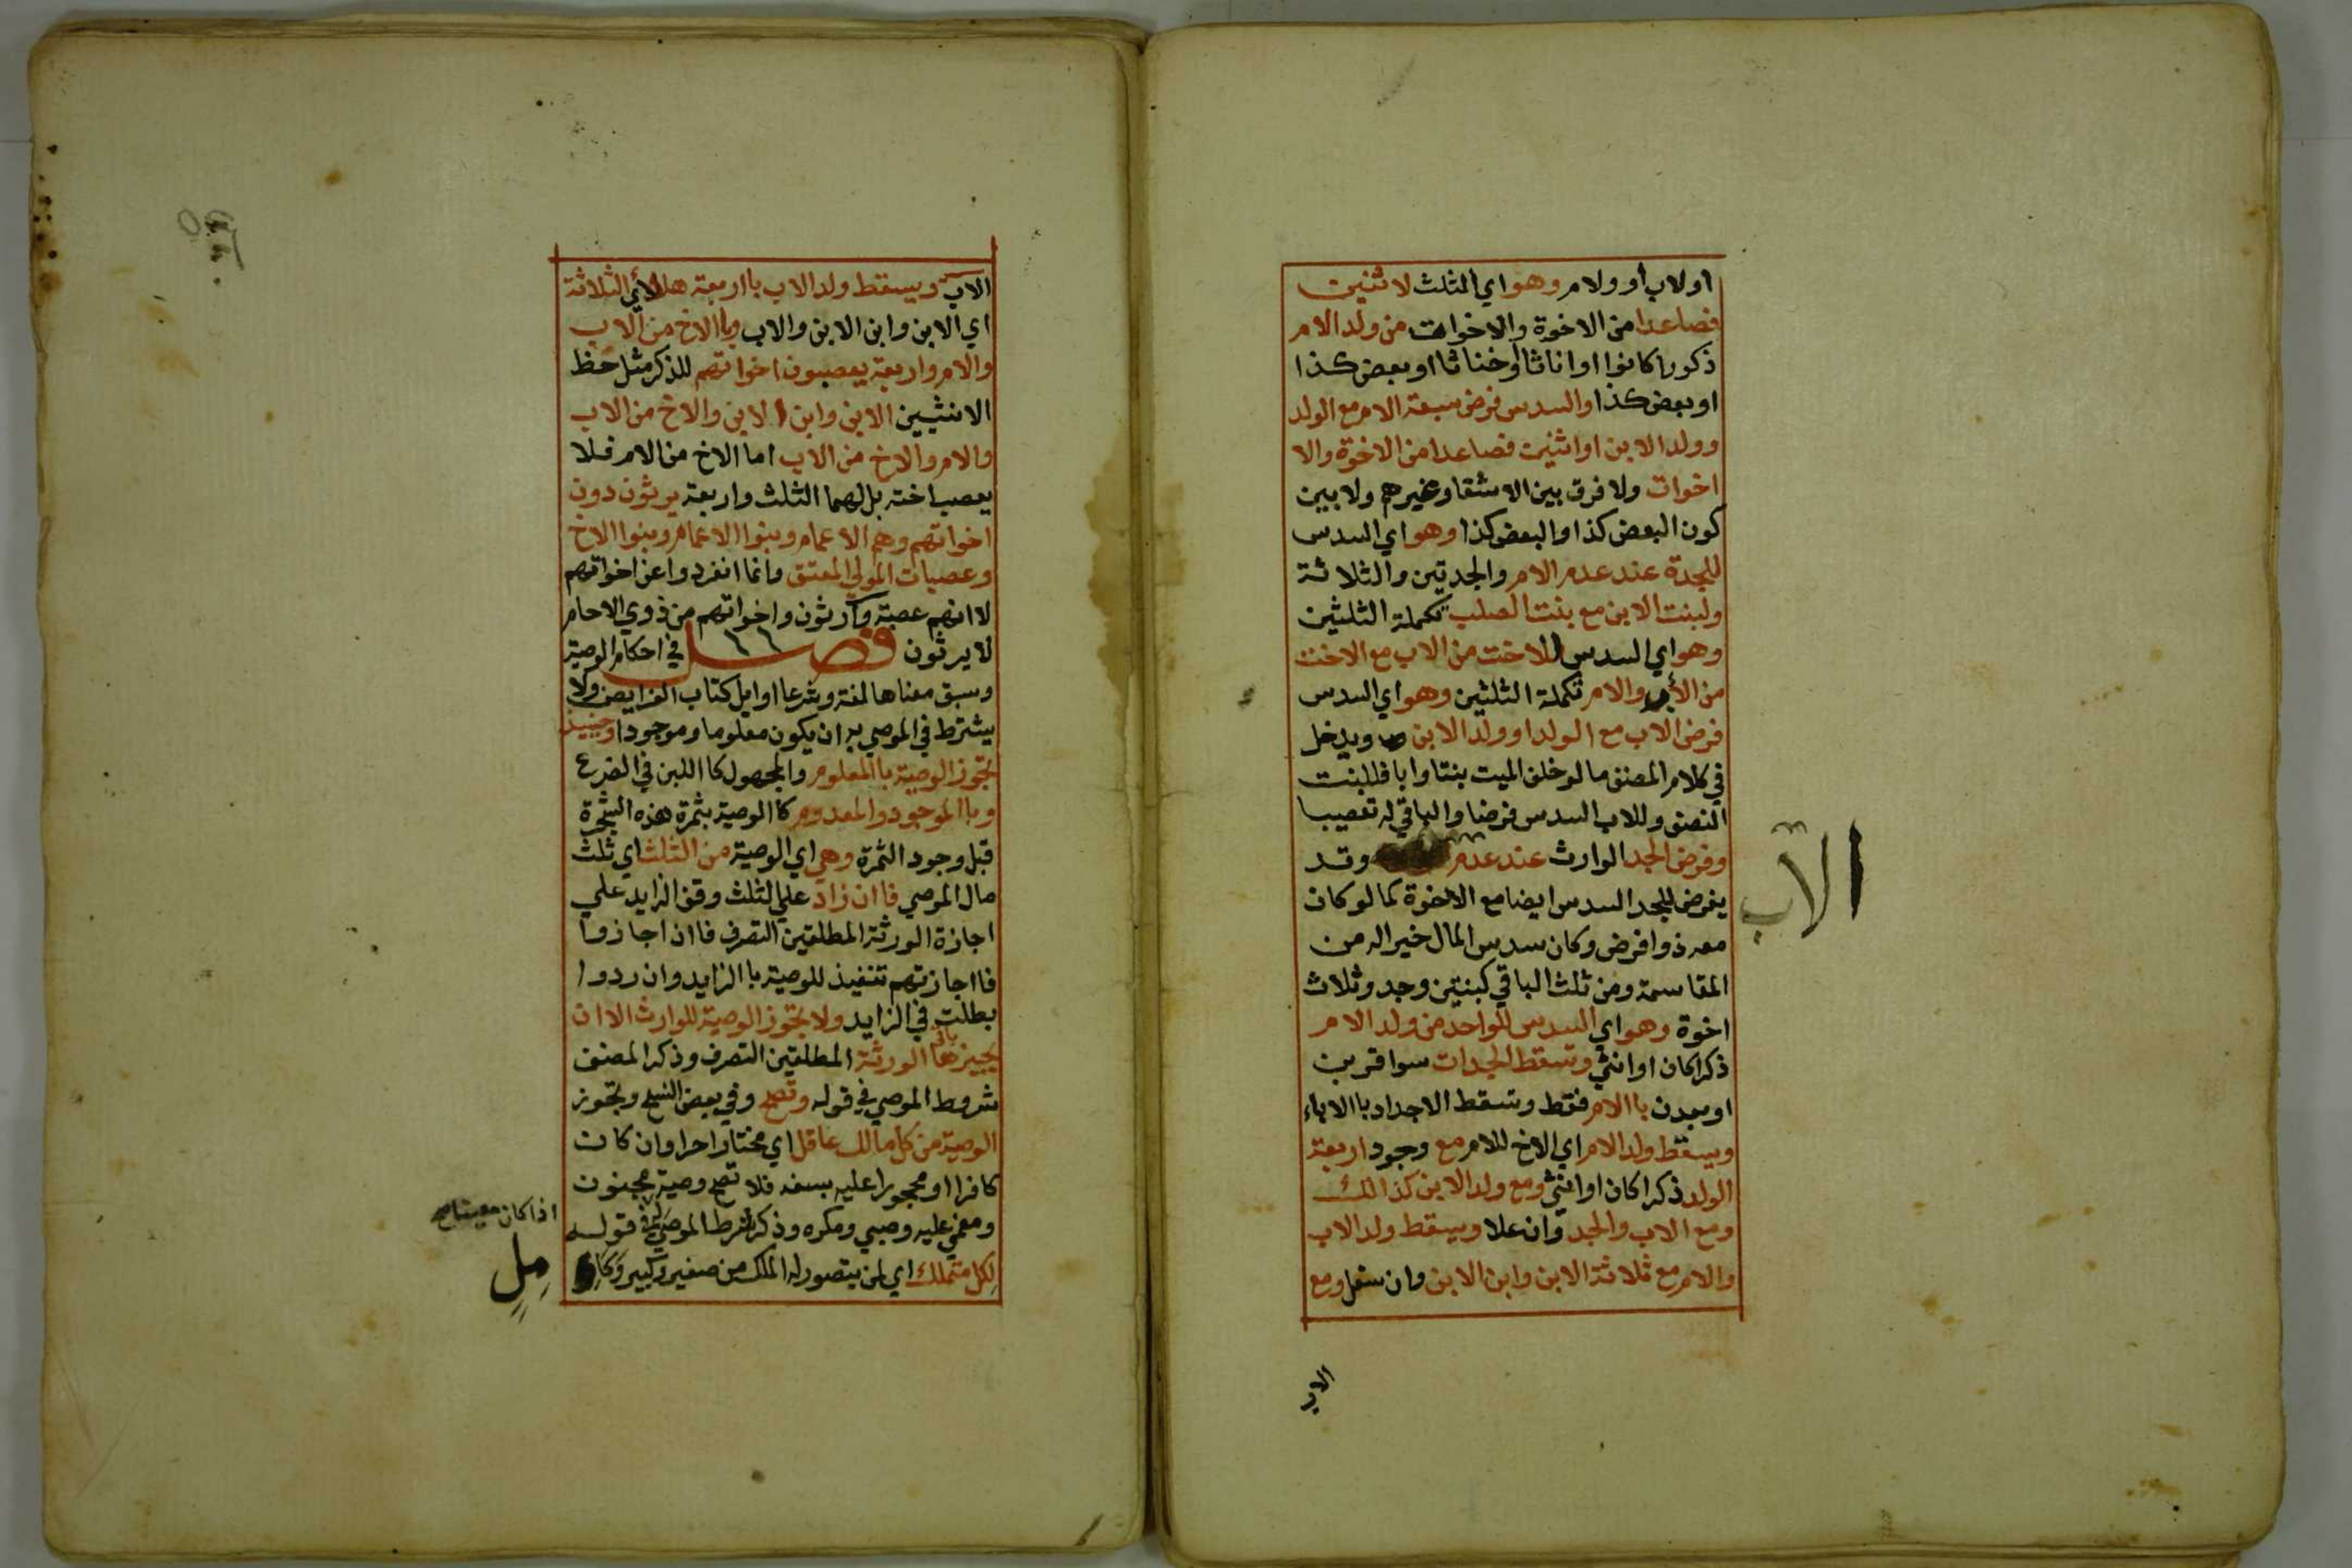 او لاب أو ولام وهو اي الثلث لاثنين
فصاعدا من الاخوة والاخوات من ولد الام
ذكورا كانوا او اناثا او خناثا او بعض كذا
او بعض كذا والسدس فرض سبعة الام مع الولد
وولد الابن او اثنين فصاعدا من الاخوة والا
اخوات ولا فرق بين الاشقا وغيرهم ولا بين
كون البعض كذا والبعض كذا وهو اي السدس
للجدة عند عدم الام والجدتين والثلاثة
ولبنت الابن مع بنت الصلب تكملة الثلثين
وهو اي السدس للاخت من الاب مع الاخت
من الأب والام تكملة الثلثين وهو اي السدس
فرض الاب مع الولد او ولد الابن ويدخل
في كلام المصنف ما لو خلف الميت بنتا وابا فللبنت
النصف وللاب السدس فرضا والباقي له تعصيبا
وفرض الجد الوارث عند عدم وقد
يفرض للجد السدس ايضا مع الاخوة كما لو كان
معه ذوا فرض وكان سدس المال خيرا له من
المقاسمة ومن ثلث الباقي كبنتين وجد وثلاث
اخوة وهو اي السدس للواحد من ولد الام
ذكرا كان او انثي وتسقط الجدات سوا قربن
او بعدن باالام فقط وتسقط الاجداد باالاباء
ويسقط ولد الام اي الاخ للام مع وجود اربعة
الولد ذكرا كان او انثي ومع ولد الابن كذالك
ومع الاب والجد وان علا ويسقط ولد الاب
والام مع ثلاثة الابن وابن الابن وان سفل ومع
الاب
الاب
الاب ويسقط ولد الاب بااربعة الثلاثة
اي الابن وابن الابن والاب وباالاخ من الاب
والام واربعة يعصبون اخواتهم للذكر مثل حظ
الانثيين الابن وابن الابن والاخ من الاب
والام والاخ من الاب اما الاخ من الام فلا
يعصب اخته بل لهما الثلث واربعة يرثون دون
اخواتهم وهم الاعمام وبنوا الاعمام وبنوا الاخ
وعصبات المولي المعتق وانما انفردوا عن اخواتهم
لاانهم عصبة وارثون واخواتهم من ذوي الاحام
لا يرثون فصل في احكام الوصية
وسبق معناها لغة وشرعا اوايل كتاب الفرايض ولا
يشترط في الموصي به ان يكون معلوما وموجودا وحينيذ
تجوز الوصية باالمعلوم والمجهول كااللبن في الضرع
وباالموجود والمعدوم كاالوصية بثمرة هذه الشجرة
قبل وجود الثمرة وهي اي الوصية من الثلث اي ثلث
مال الموصي فاان زاد علي الثلث وقف الزايد علي
اجازة الورثة المطلقين التصرف فاان اجازوا
فااجازتهم تنفيذ للوصية باالزايد وان ردوا
بطلت في الزايد ولا تجوز الوصية للوارث الا ان
يجيزها باقي الورثة المطلقين التصرف وذكر المصنف
شروط الموصي في قوله وتصح وفي بعض النسخ وتجوز
الوصية من كل مالك عاقل اي مختار احرا وان كان
كافرا او محجورا عليه بسفه فلا تصح وصية مجنون
ومغمي عليه وصبي ومكره وذكر شرط الموصي له في قوله
لكل متملك اي لمن يتصور له الملك من صغير وكبير وكا
اذا كان معينا
مل